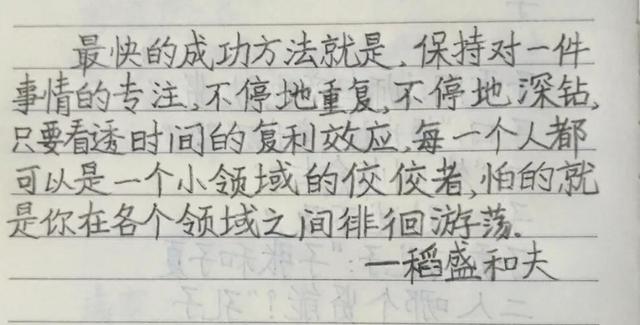 最快的成功方法就是,保持对一件
事情的专注,不停地重复,不停地深钻,
只要看透时间的复利效应,每一个人都
可以是一个小领域的佼佼者,怕的就
是你在各个领域之间徘徊游荡.
—稻盛和夫